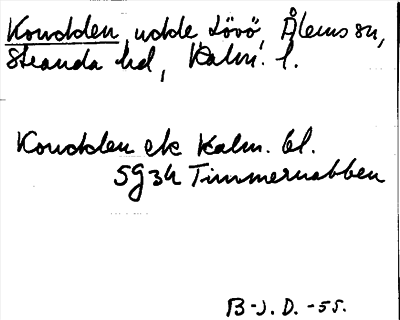 Konudden, udde Lövö, Ålems sn,
Stranda hd, Kalm. l.
Konudden ek Kalm. bl.
5G3h Timmernabben
B-J. D. -55.